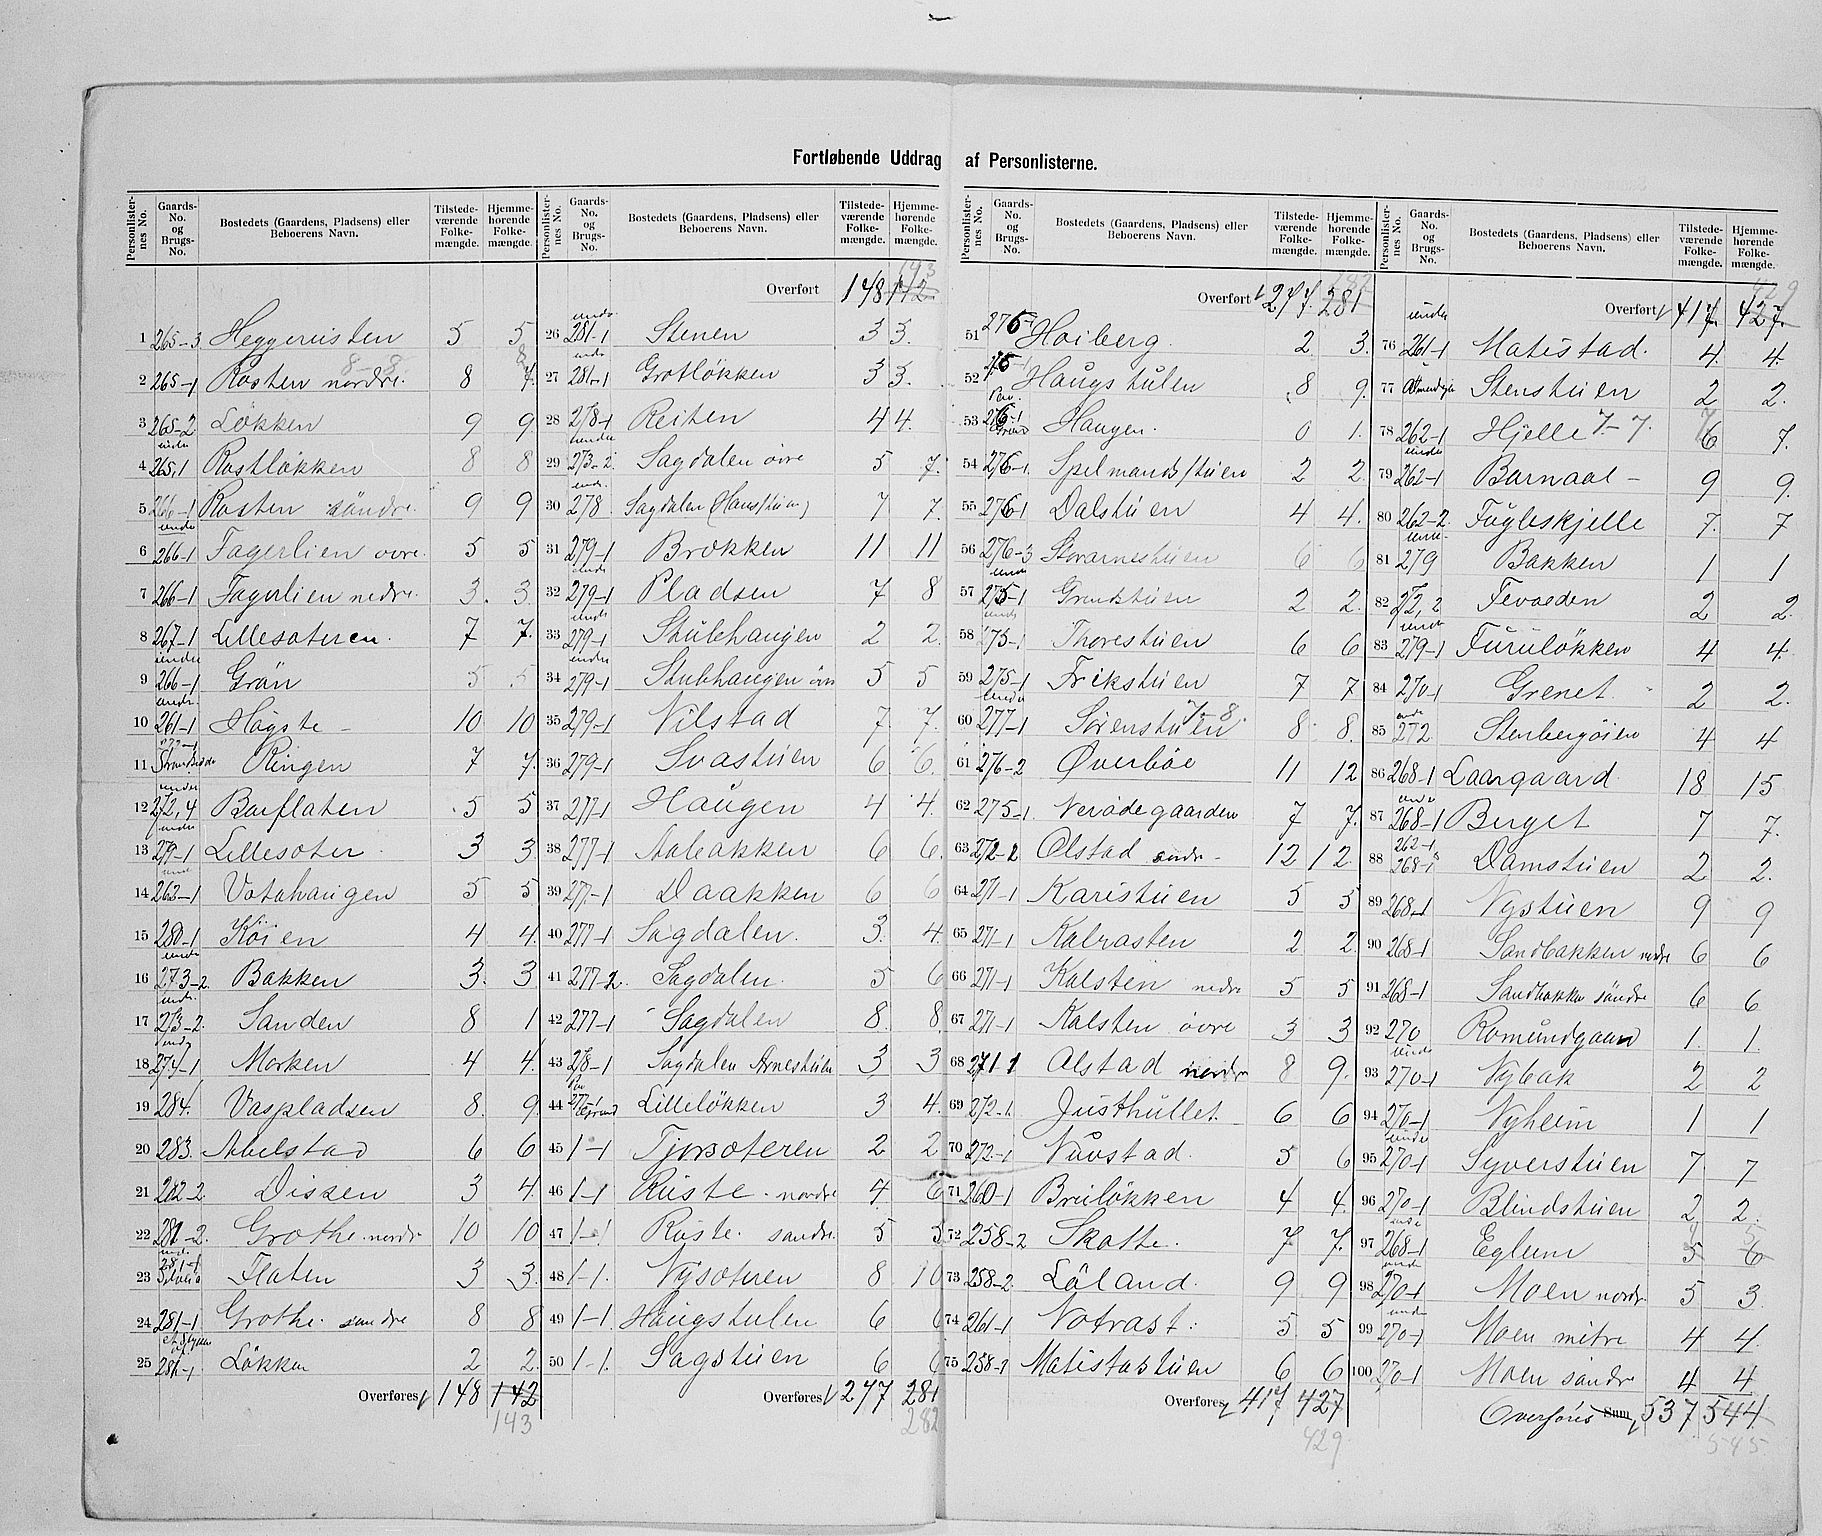 Fortløbende Uddrag af Personlisterne.
Personlister-nes No. Gaards-No. og Brugs-No. Bostedets (Gaardens, Pladsens) eller Beboerens Navn. Tilstede-værende Folke-mængde. Hjemme-hørende Folke-mængde.
1 265-3 5 5
2 265-1 Rosten nordre. 8 7. 8-8 8
3 265-2 Løkken 9 9
4 under 265,1 Rostløkken 8 8
5 266-1 Rosten søndre. 9 9
6 under 266-1 Fagerlien øvre. 5 5
7 266-1 Fagerlien nedre. 3. 3.
8 267-1 Lillesæteren. 7 7.
9 under 266-1 Grøn 5 5
10 under 261-1 Høgste - 10 10
11 Ringen 7 7.
12 under 272,4 Barflaten 5 5
13 under 279-1 Lillesæter. 3 3
14 263-1 Vatshaugen 5 5
15 280-1 Køien 4 4.
16 under 273-2 Bakken 3. 3.
17 under 273-2. Sanden 8 1
18 under 274-1 Morken 4 4.
19 284. Vaspladsen 8. 9.
20 283. Abelstad 6 6
21 282-2 Dissen 3 4.
22 281-2. Grothe nordr 10 10
23 281-1 Flaten 3 3.
24 281-1 Grothe. søndre 8 8
25 281-1 Løkken 2 2.
Overføres 148 142
143
Personlister-nes No. Gaards-No. og Brugs-No. Bostedets (Gaardens, Pladsens) eller Beboerens Navn. Tilstede-værende Folke-mængde. Hjemme-hørende Folke-mængde.
Overført 148 142. 143
26 under 281-1 Stenen 3 3.
27 under 281-1 Grotløkken 3 3.
28 278-1 Reiten 4 4.
29 under 273-2. Sagdalen øvre 5 7.
30 278. Sagdalen 7 7.
31 279-1 Brøkken 11 11
32 under 279-1 Pladsen 7 8
33 under 279-1 Stubhaugen 2 2.
34 under 279-1 Stubhaugen 5 5
35 279-1 Vilstad 7 7.
36 279-1 Svastuen 6 6.
37 277-1 Haugen 4 4.
38 277-1 Aabakken 6 6.
39 277-1 Daakken 6 6
40 277-1 Sagdalen. 3. 4.
41 277-2. Sagdalen. 5 6
42 277-1 Sagdalen 8. 8.
43 278-1 Sagdalen Arnestuen 3 3
44 Lilleløkken 3 4.
45 1-1 Tjørsæteren 2 2
46 1-1 Ruste. nordre 4 6
47 1-1 Ruste. søndre. 5 5
48 1-1. Nysæteren 8 10
49 1-1. Haugstulen 6 6
50 1-1. Sagstuen 6 6
Overføres 277 281
282
Personlister-nes No. Gaards-No. og Brugs-No. Bostedets (Gaardens, Pladsens) eller Beboerens Navn. Tilstede-værende Folke-mængde. Hjemme-hørende Folke-mængde.
Overført 277. 281 282
51 276-1 Hoiberg. 2 3.
52 Haugstulen 8 9.
53 276-1 Haugen. 0 1.
54 276-1. Spelmandsstuen 2 2.
55 276-1 Dalstuen 4 4.
56 276-3 6 6
57 under 275-1 2 2.
58 under 275-1. Thorestuen 6 6
59 275-1 Erikstuen 7 7
60 under 277-1 Sørenstuen 8 8. 7-8.
61 276-2 Øverbøe 11 12
62 275-1. 7 7.
63 272-2 Ølstad søndr- 12 12.
64 271-1 Karistuen 5 5
65 271-1 Kalrasten 2 2.
66 271-1 Kalsten nedre 5 5
67 271-1 Kalsten øvre 3 3
68 271 1 Alstad nordre 8 9.
69 272-1. Justhullet. 6 6
70 272-1 Nuvstad. 5 6
71 260-1 Bruløkken 4 4.
72 258-2 Skotte. 7 7.
73 258-2. Løland. 9 9
74 261-1 Notrast. 5 5
75 258-2 Matistastuen 6 6
Overføres 417 427
429
Personlister-nes No. Gaards-No. og Brugs-No. Bostedets (Gaardens, Pladsens) eller Beboerens Navn. Tilstede-værende Folke-mængde. Hjemme-hørende Folke-mængde.
Overført 417. 427. 429
76 under 261-1 Matistad. 4. 4.
77 Stenstuen 2 2.
78 262-1 Hjelle 7-7. 6 7. 7
79 under 262-1 Barnaal - 9 9.
80 262-2. Fugleskjelle 7. 7
81 under 279 Bakken 1 1
82 272,2 Fevolden 2 2.
83 under 279-1 Furuløkken 4 4.
84 270-1 Grenet. 2 2.
85 under 272 Stenbergøien 4 4
86 268-1 Laargaard 18 15
87 under 268-1 Berget 7 7.
88 262-1 268-1 Damstuen 2 2.
89 268-1 Nystuen 9 9
90 268-1 Sandbakken nedre 6 6
91 268-1 Sandbakken søndre 6 6
92 270 Romundgaard 1. 1.
93 under 270-1 Nybak 2 2
94 270-1 Nyheim 1 1
95 under 270-1 Syverstuen 7 7
96 270-1 Blindstuen 2 2.
97 under 268-1 Eglum 5 6
98 under 270-1 Moen nordr 5 3.
99 under 270-1 Moen mitre 4 4.
100 270-1 Moen søndr 4 4
Overføres Sum 537 544
545